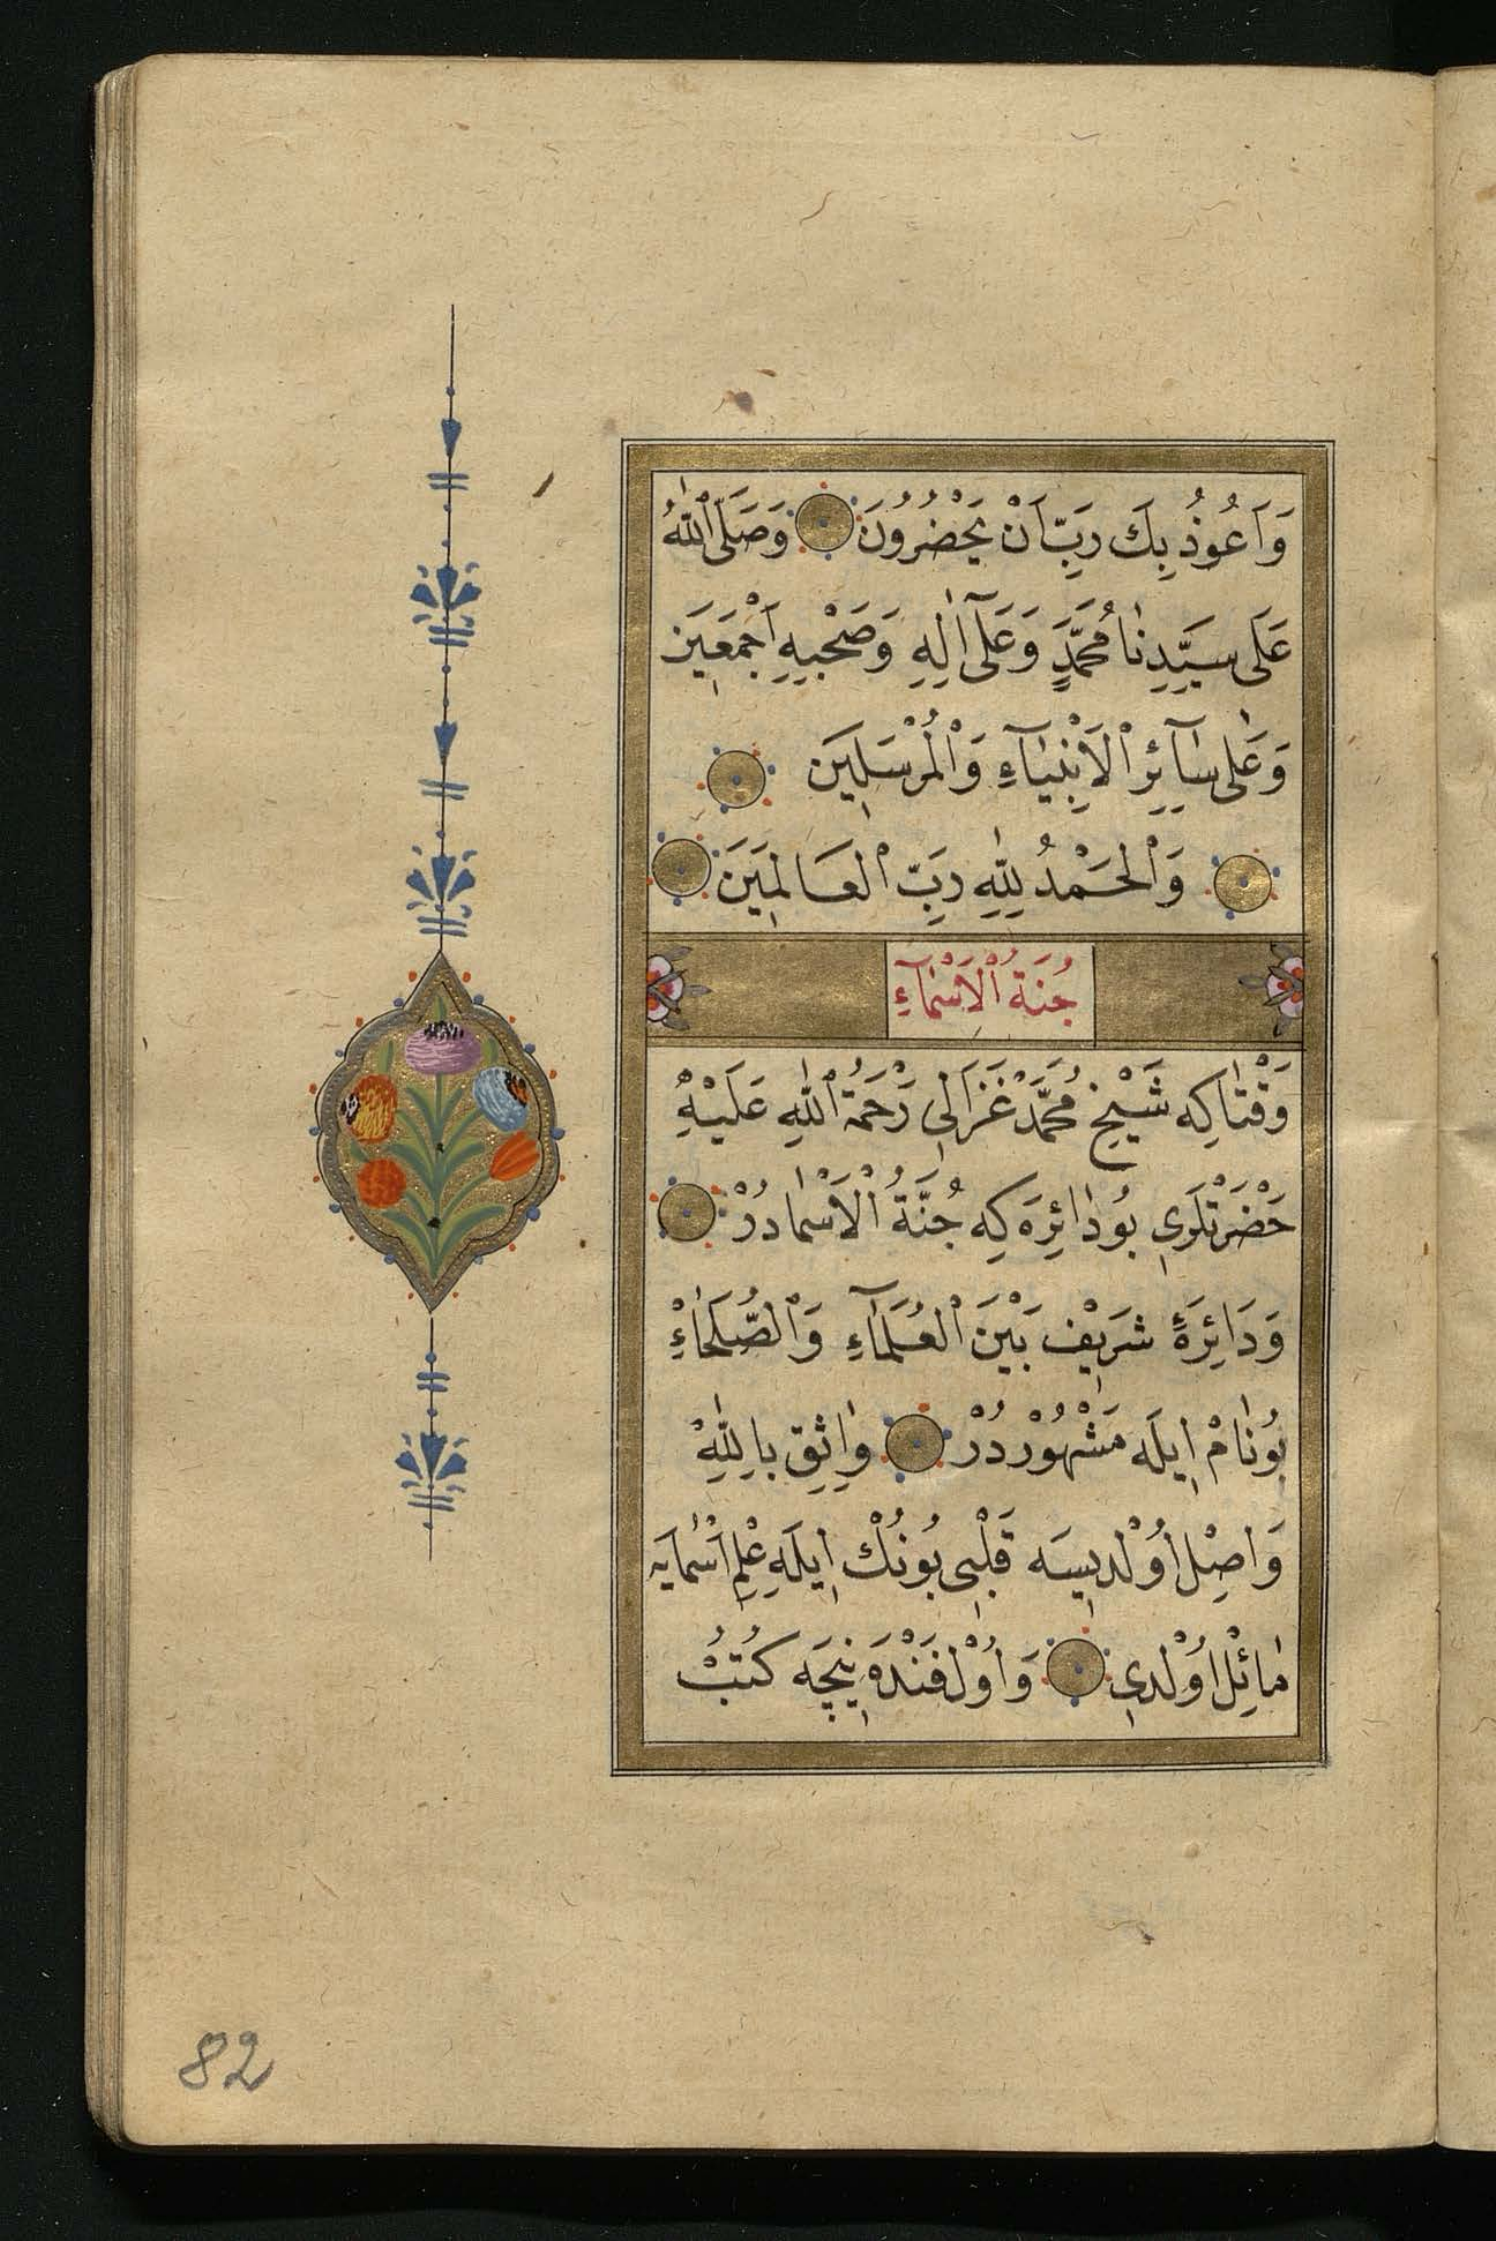 وَاَعُوذُ بِكَ رَبِّ اَنْ يَحْضُرُونَ وَصَلَّى ٱللّٰهُ
عَلَى سَيِّدِنَا مُحَمَّدٍ وَعَلَى اٰلِهِ وَصَحْبِهِ اَجْمَعِينَ
وَعَلٰى سَآئِرِ ٱلْاَنْبِيَآءِ وَٱلْمُرْسَلِينَ
وَٱلْحَمْدُ لِلّٰهِ رَبِّ ٱلْعَالَمِينَ
جُنَةُ ٱلْاَسْمَآءِ
وَقْتَاكِه شَيْخ مُحَمَّدْ غَزَالِى رَحْمَةُ ٱللّٰهِ عَلَيْهِ
حَضْرَتْلَرِى بُو دَائِرَه كِه جُنَّةُ ٱلْاَسْمَا دُرْ
وَدَائِرَۀِ شَرِيفْ بَيْنَ ٱلْعُلَمَآءِ وَٱلصُّلَحَاءْ
بُونَامْ اِيلَه مَشْهُورْ دُرْ وَاثِق بِاللّٰهِ
وَاصِلْ اُولْدِيسَه قَلْبِى بُونُكْ اِيلَه عِلْمِ اَسْمَايَه
مَائِلْ اُولْدِى وَاُولْ فَنْدَه نِيچَه كُتُبْ
82